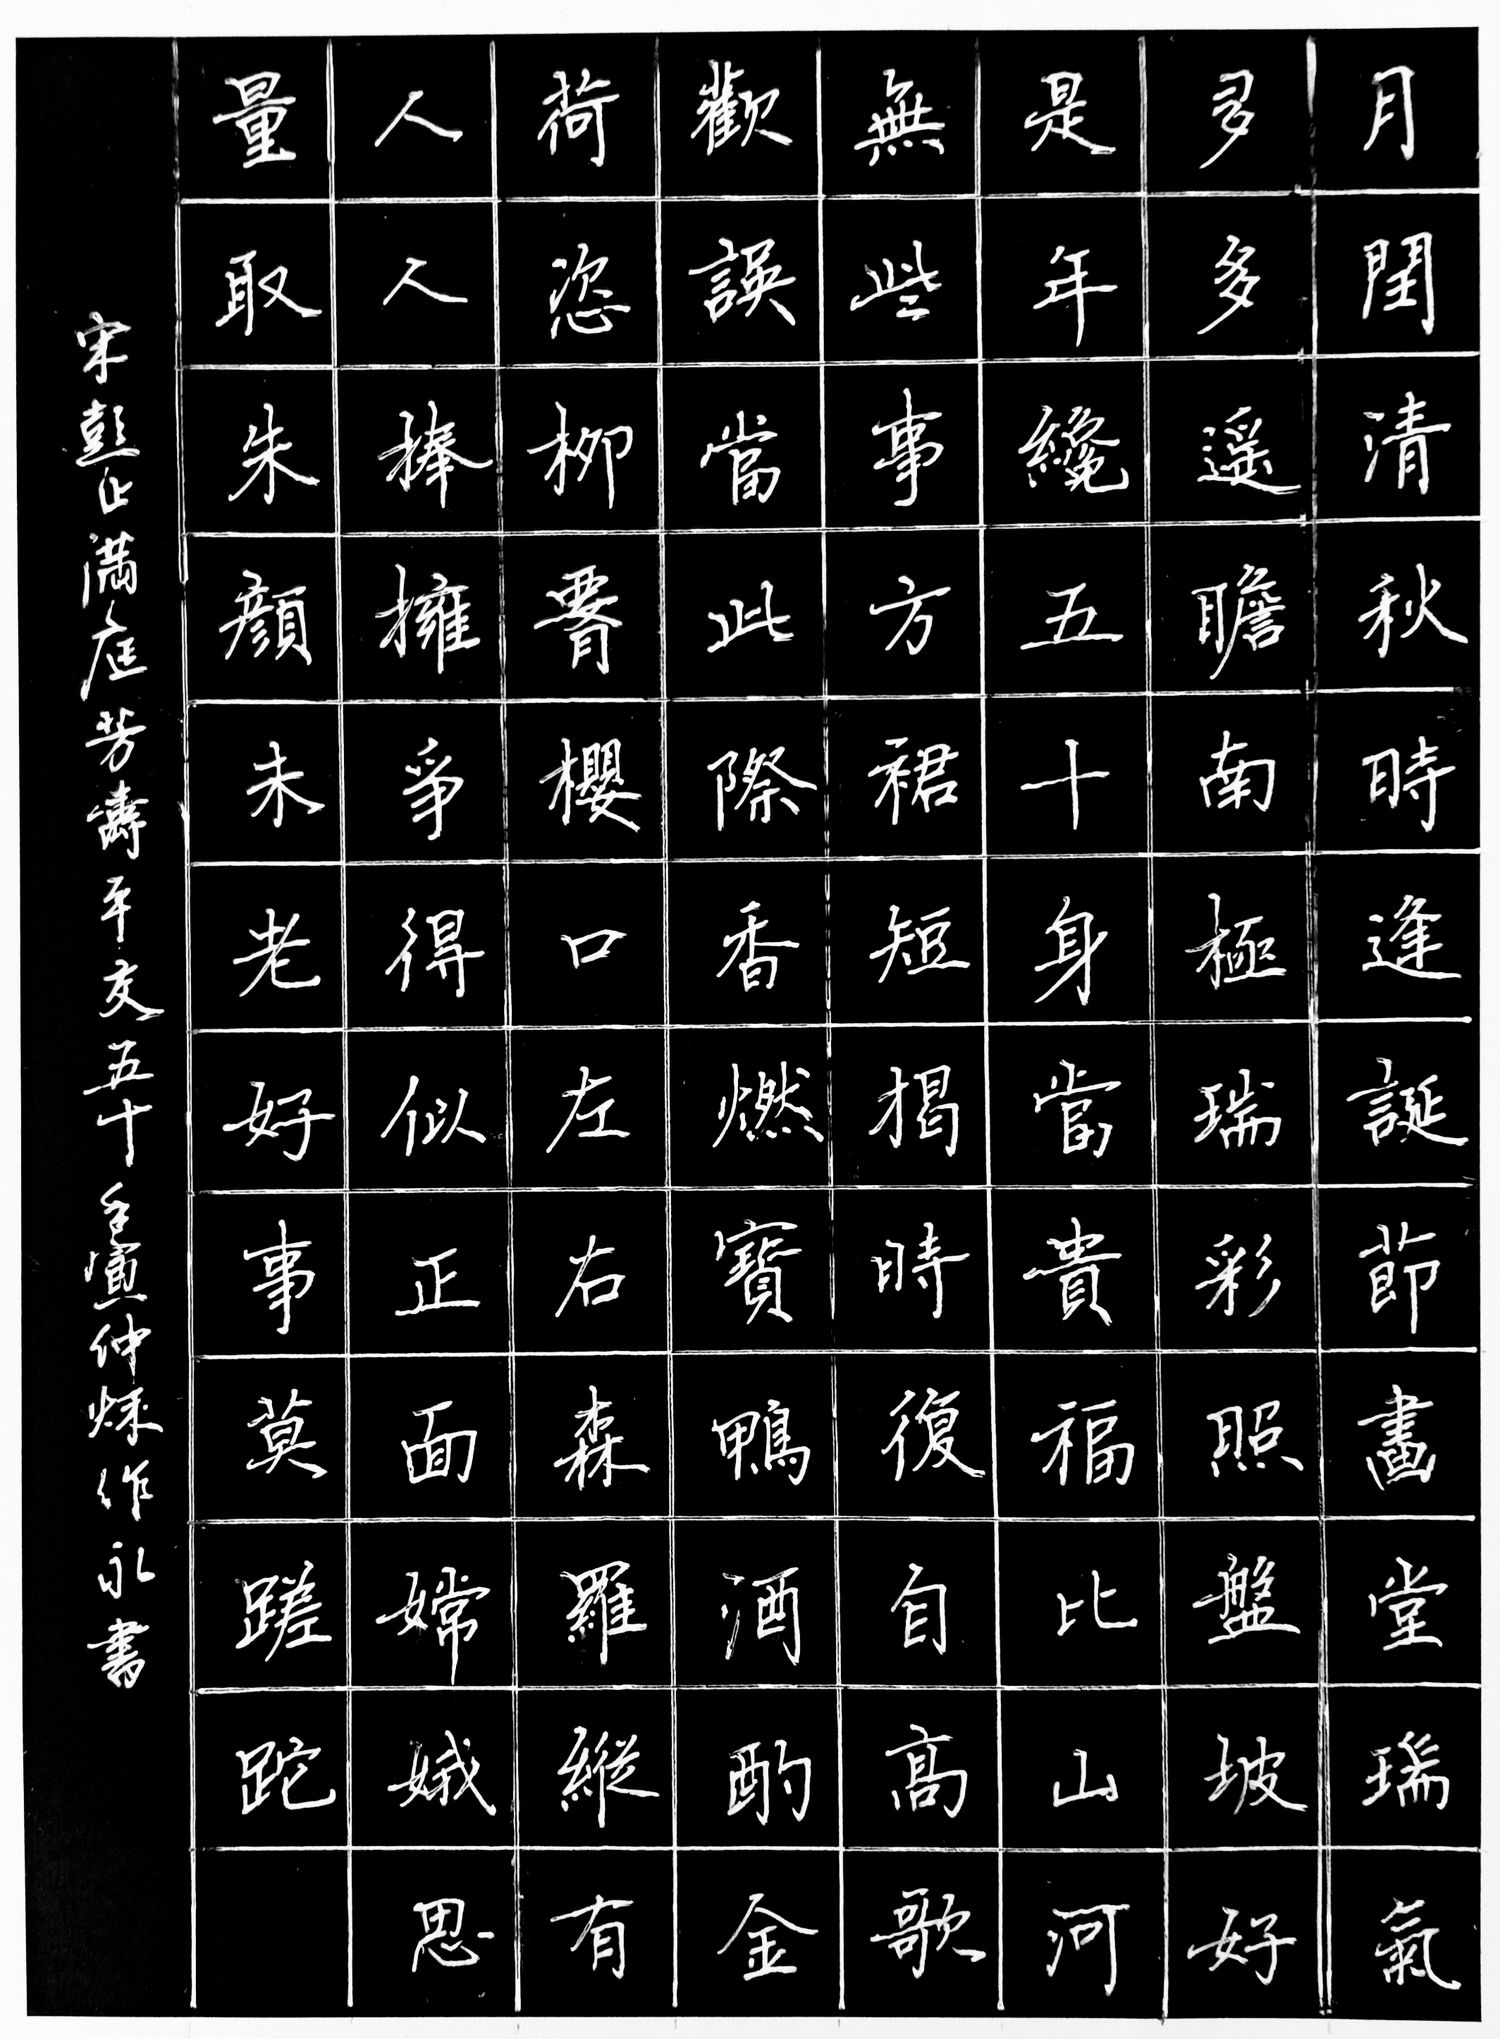 月閏清秋時逢誕節畫堂瑞氣
多多遥瞻南極瑞彩照盤坡好
是年纔五十身當貴福比山河
無些事方裙短揭時復自高歌
歡誤當此際香燃寶鴨酒酌金
荷恣柳腰櫻口左右森羅縱有
人人捧擁爭得似正面嫦娥思
量取朱顔未老好事莫蹉跎
宋彭止满庭芳壽平交五十壬寅仲烁作永書